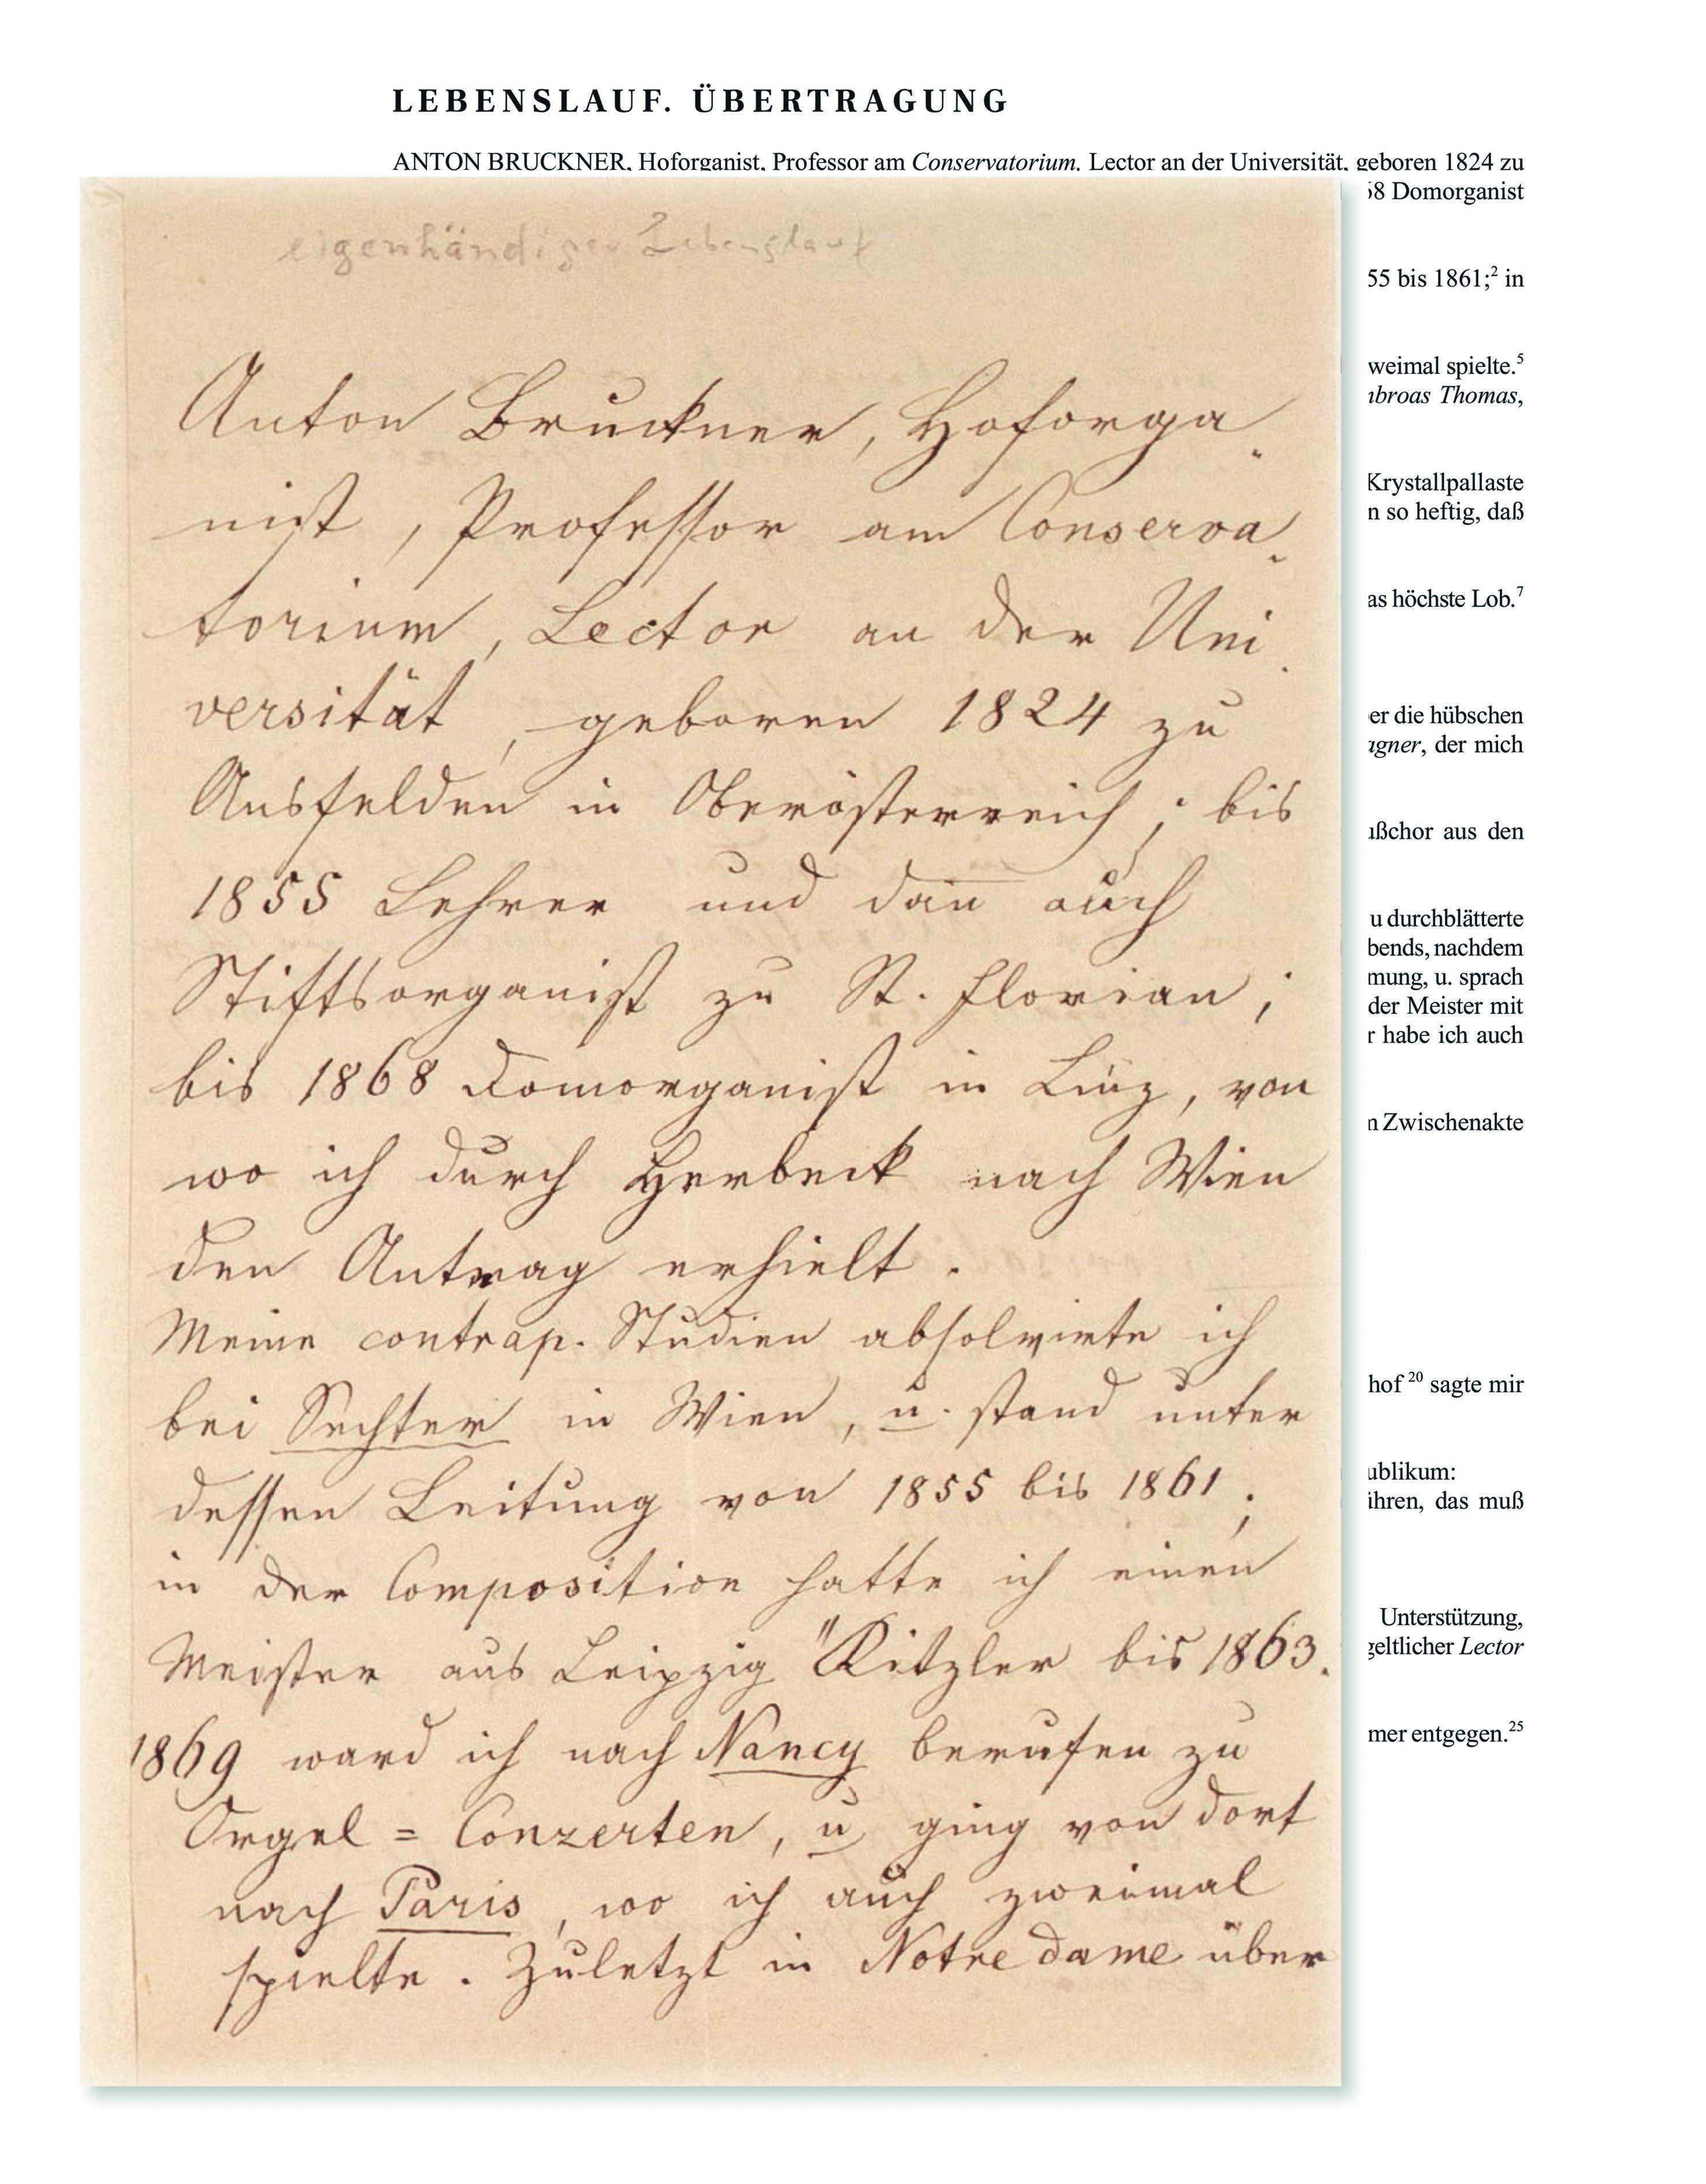 LEBENSLAUF. ÜBERTRAGUNG
ANTON BRUCKNER, Hoforganist, Professor am Conservatorium, Lector an der Universität, geboren 1824 zu
58 Domorganist
eigenhändiger Lebenslauf
55 bis 1861;² in
weimal spielte.⁵
mbroas Thomas,
Anton Bruckner, Hoforga-
Krystallpallaste
n so heftig, daß
nist, Professor am Conserva-
as höchste Lob.⁷
torium, Lector an der Uni-
versität, geboren 1824 zu
er die hübschen
agner, der mich
Ansfelden in Oberösterreich; bis
ußchor aus den
1855 Lehrer und dan̅ auch
u durchblätterte
bends, nachdem
mung, u. sprach
Stiftsorganist zu St. Florian;
der Meister mit
r habe ich auch
bis 1868 Domorganist in Linz, von
n Zwischenakte
wo ich durch Herbeck nach Wien
den Antrag erhielt.
Meine contrap. Studien absolvirte ich
hof ²⁰ sagte mir
bei Sechter in Wien, u. stand unter
ublikum:
dessen Leitung von 1855 bis 1861;
ihren, das muß
in der Composition hatte ich einen
Unterstützung,
geltlicher Lector
Meister aus Leipzig "Kitzler bis 1863.
mer entgegen.²⁵
1869 ward ich nach Nancy berufen zu
Orgel = Conzerten, u ging von dort
nach Paris, wo ich auch zweimal
spielte. Zuletzt in Notre dame über